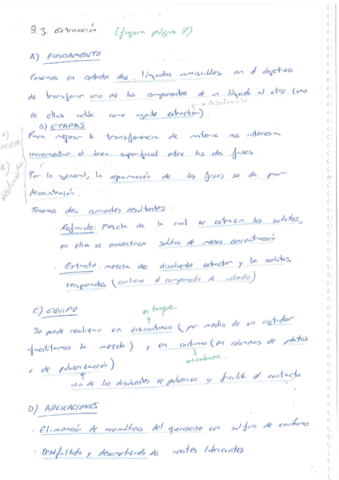 3.3. extracción (figura página 8)
A) FUNDAMENTO
Ponemos en contacto dos líquidos inmiscibles con el objetivo
de transferir uno de los componentes de un líquido al otro (uno
de ellos actúa como agente extractor)
→ disolvente
B) ETAPAS
Para mejorar la transferencia de materia nos interesa
incrementar el área superficial entre las dos fases.
Por lo general, la separación de las fases se da por
decantación.
Tenemos dos corrientes resultantes:
· Refinado: Mezcla de la cual se extraen los solutos,
en ella se encuentran solutos de menos concentración
· Extracto: mezcla de disolvente extractor y los solutos
recuperados (contiene el componente de interés)
C) EQUIPO
en tanque
Se puede realizar en discontinuo (por medio de un agitador
facilitamos la mezcla) y en continuo (en columnas de platos
o de pulverización)
en columna
uno de los disolventes se pulveriza y facilita el contacto
D) APLICACIONES
· Eliminación de aromáticos del queroseno con sulfuro de carbono
· Desasfaltado y de aceites lubricantes